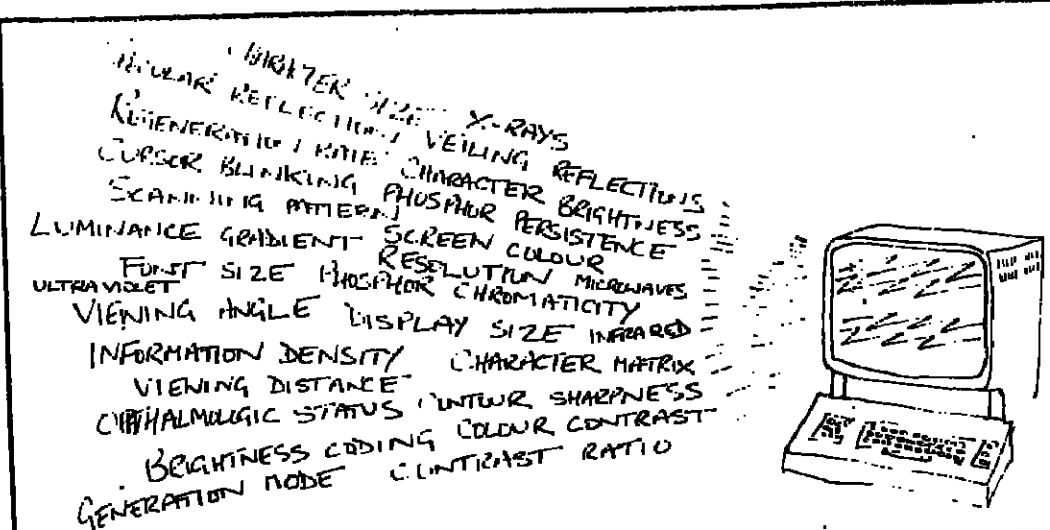 CHARACTER SIZE X-RAYS
REFLECTIONS VEILING REFLECTIONS
REGENERATION RATE CHARACTER BRIGHTNESS
CURSOR BLINKING PHOSPHOR PERSISTENCE
SCANNING PATTERN SCREEN COLOUR
LUMINANCE GRADIENT RESOLUTION MICROWAVES
FONT SIZE PHOSPHOR CHROMATICITY
ULTRAVIOLET
VIEWING ANGLE DISPLAY SIZE INFRARED
INFORMATION DENSITY CHARACTER MATRIX
VIEWING DISTANCE
OPHTHALMOLOGIC STATUS CONTOUR SHARPNESS
BRIGHTNESS CODING COLOUR CONTRAST
GENERATION MODE CONTRAST RATIO